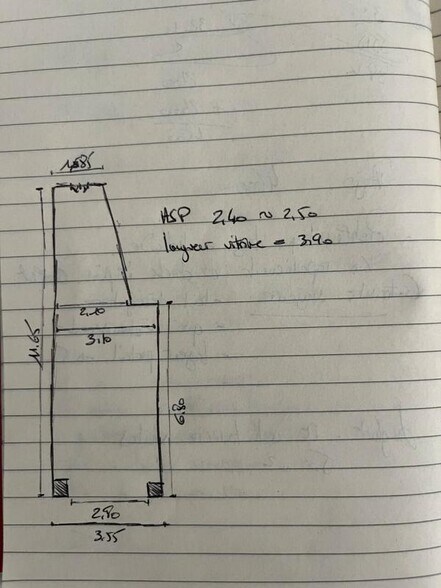 1,85
HSP 2,40 ~ 2,50
longueur vitrine = 3,90
2,20
3,10
11.65
6.80
2,80
3.55